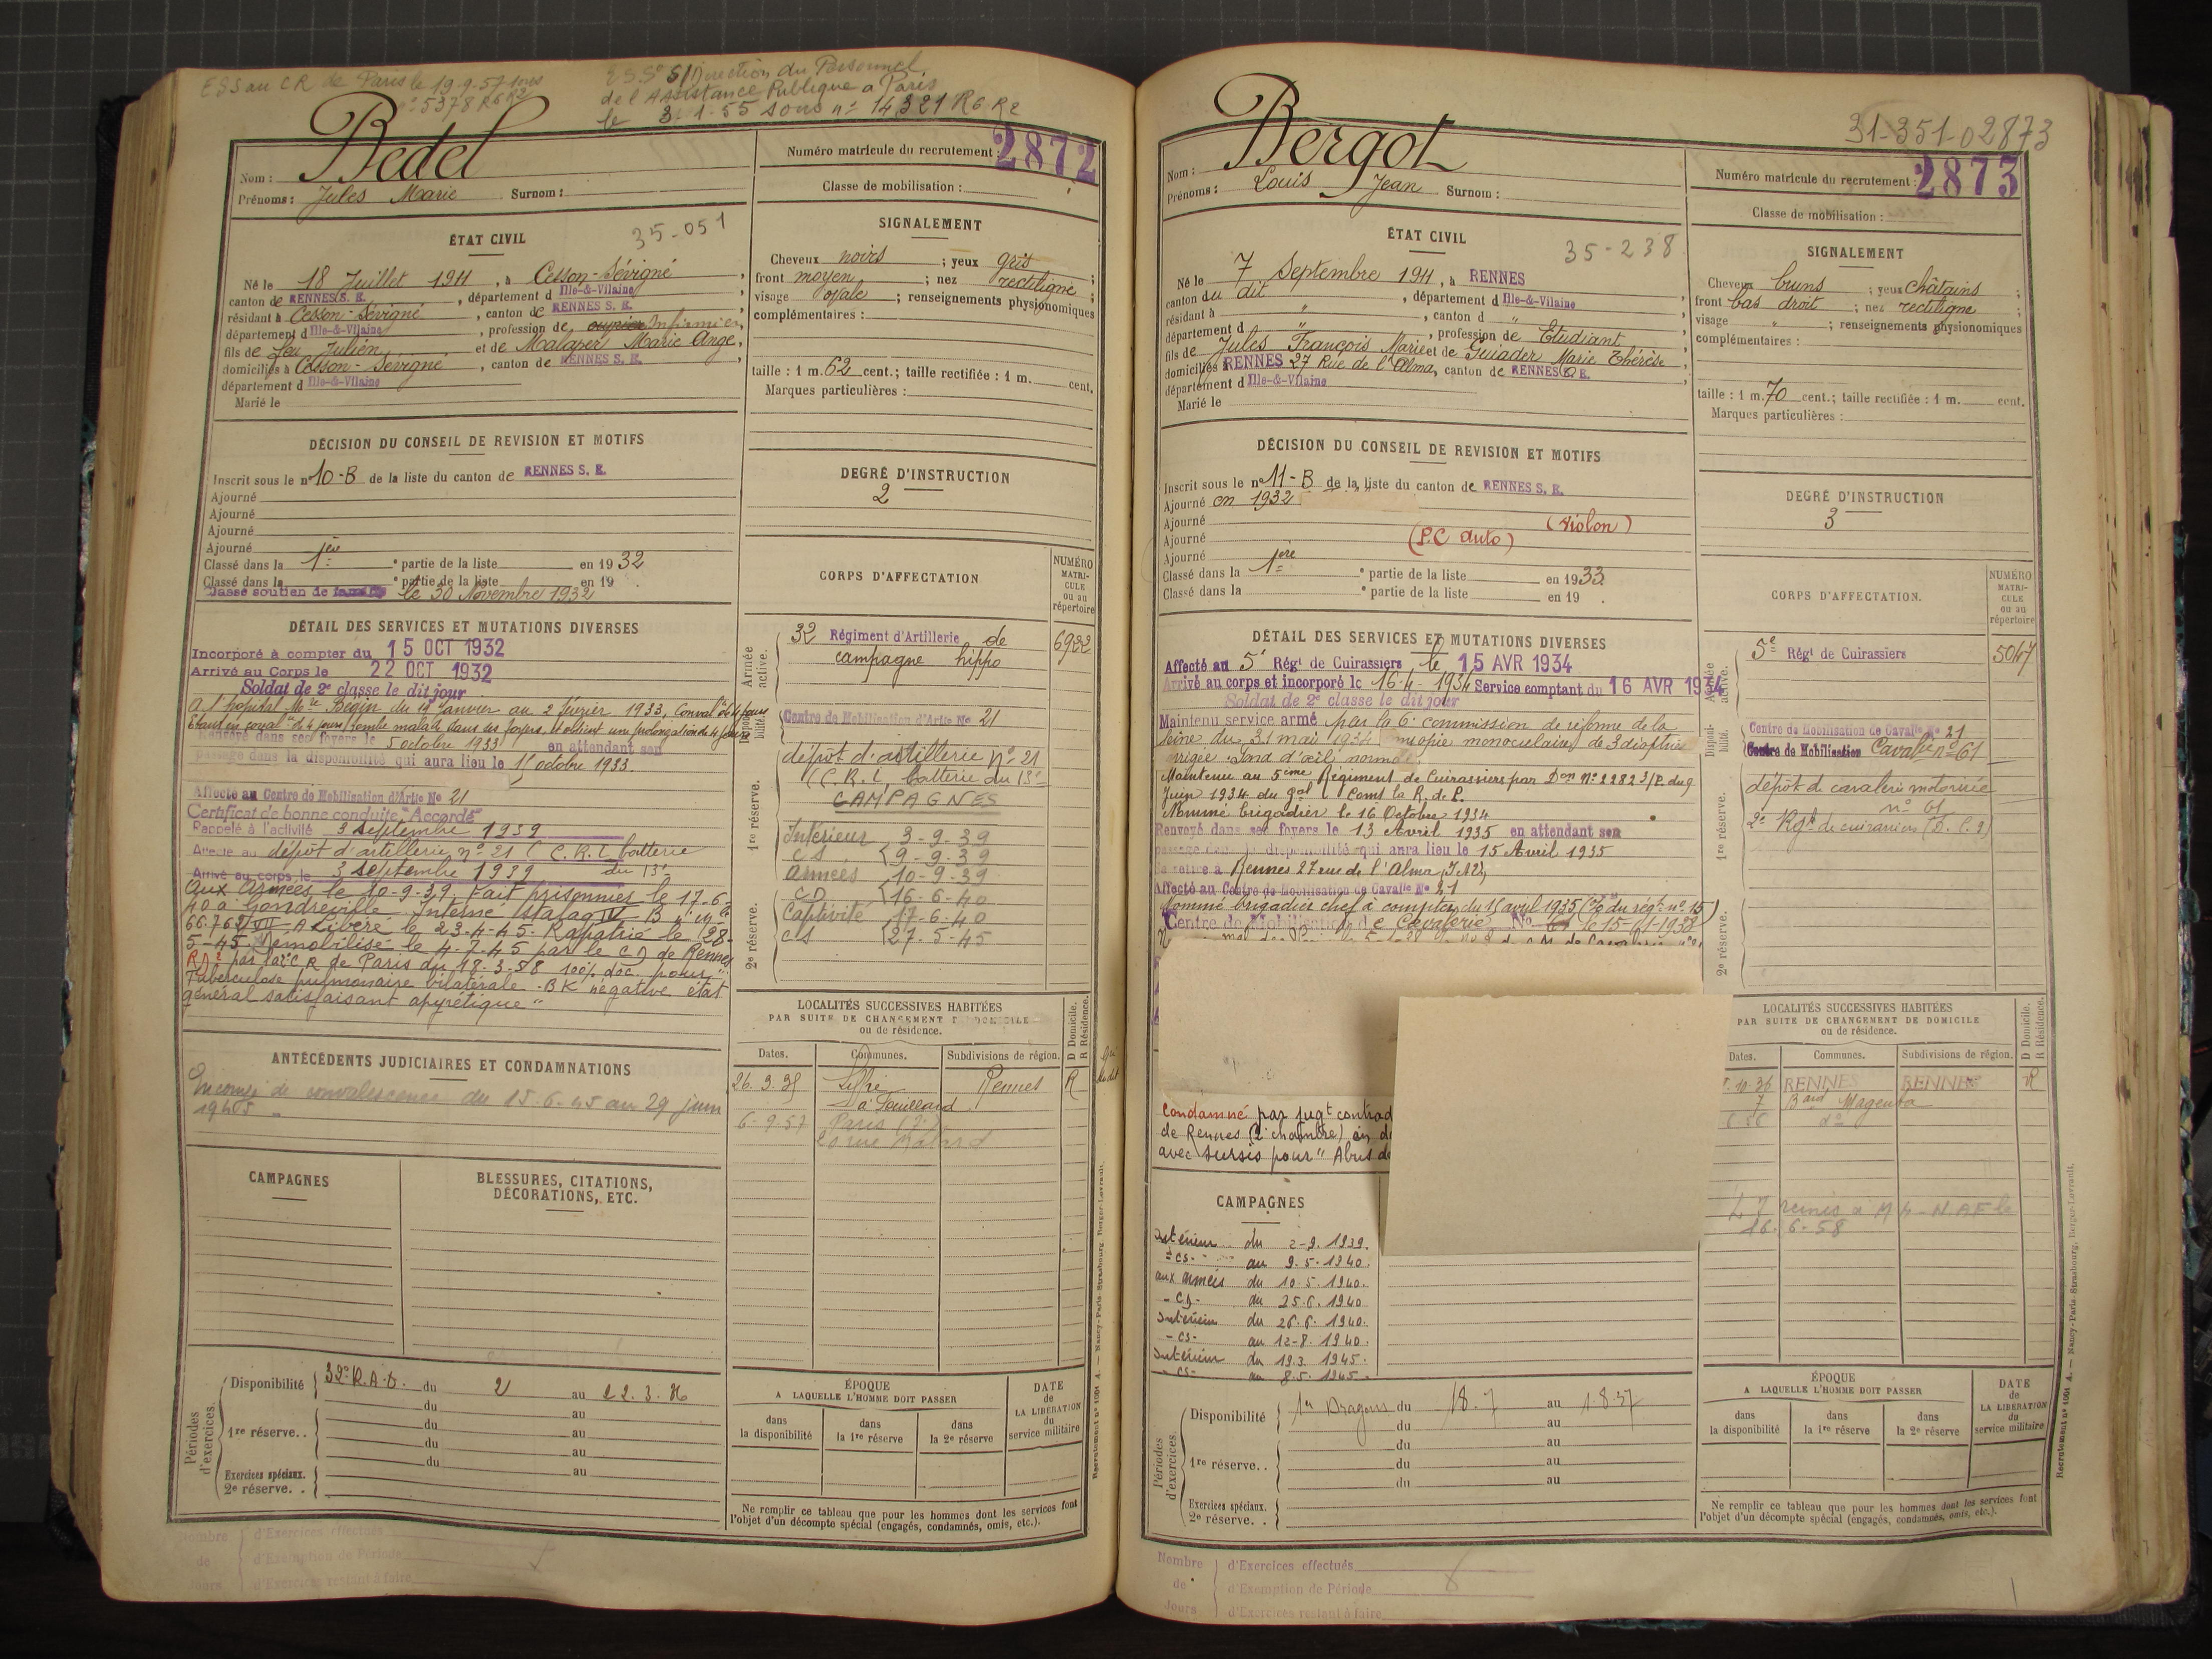 ESS au CR de Paris le 19-9-57
n° 5378 R6 R2
Direction du Personnel
de l'Assistance Publique à Paris
le 3-1-55 sous n° 14321 R6 R2
Nom : Bedel
Prénoms : Jules Marie Surnom :
Numéro matricule du recrutement : 2872
Classe de mobilisation :
ÉTAT CIVIL
35-051
Né le 18 Juillet 1911, à Cesson-Sévigné,
canton de RENNES S. E., département d Ille-&-Vilaine
résidant à Cesson-Sévigné, canton de RENNES S. E.
département d Ille-&-Vilaine, profession de ouvrier Infirmier,
fils de feu Julien et de Marie Ange,
domiciliés à Cesson-Sévigné, canton de RENNES S. E.
département d Ille-&-Vilaine
Marié le
SIGNALEMENT
Cheveux noirs ; yeux gris ;
front moyen ; nez rectiligne ;
visage ovale ; renseignements physionomiques
complémentaires :
taille : 1 m. 62 cent.; taille rectifiée : 1 m. cent.
Marques particulières :
DÉCISION DU CONSEIL DE REVISION ET MOTIFS
Inscrit sous le n° 10-B de la liste du canton de RENNES S. E.
Ajourné
Ajourné
Ajourné
Ajourné
Classé dans la 1ère partie de la liste en 1932
Classé dans la partie de la liste en 19 .
Classé soutien de famille le 30 Novembre 1932
DEGRÉ D'INSTRUCTION
2
DÉTAIL DES SERVICES ET MUTATIONS DIVERSES
Incorporé à compter du 15 OCT 1932
Arrivé au Corps le 22 OCT 1932
Soldat de 2e classe le dit jour
A l'hopital Mre Bégin du 19 Janvier au 2 février 1933, Conval
Renvoyé dans ses foyers le 5 octobre 1933 en attendant son
passage dans la disponibilité qui aura lieu le 15 octobre 1933.
Affecté au Centre de Mobilisation d'Artie No 21
Certificat de bonne conduite "Accordé"
Rappelé à l'activité 3 septembre 1939
Affecté au dépôt d'artillerie n° 21 (C.R.I. batterie
Arrivé au corps le 3 septembre 1939 du 13e
Aux Armées le 10-9-39. Fait prisonnier le 17-6-
40 à Gondreville. Interné Stalag IV B
Libéré le 23-4-45. Rapatrié le 28-
5-45. Démobilisé le 4-7-45 par le CD de Rennes
par la CR de Paris du 18-3-58 100% doc. pour "
Tuberculose pulmonaire bilatérale - BK négative état
général satisfaisant apyrétique"
CORPS D'AFFECTATION
NUMÉRO MATRICULE ou au répertoire
Armée active.
32 Régiment d'Artillerie de
campagne hippo
6932
Disponibilité.
Centre de Mobilisation d'Artie No 21
1re réserve.
dépôt d'artillerie n° 21
(C.R.I. batterie du 13e
CAMPAGNES
Intérieur 3-9-39
CS 9-9-39
Armées 10-9-39
CD 16-6-40
2e réserve.
Captivité 17-6-40
CS 27-5-45
ANTÉCÉDENTS JUDICIAIRES ET CONDAMNATIONS
En congé de convalescence du 15-6-45 au 29 juin
1945
LOCALITÉS SUCCESSIVES HABITÉES
PAR SUITE DE CHANGEMENT DE DOMICILE
ou de résidence.
D Domicile.
R Résidence.
Dates. Communes. Subdivisions de région.
26.3.35 Liffré Rennes R
à Fouillard
6-9-57 Paris (7e)
20 rue Malard
CAMPAGNES
BLESSURES, CITATIONS,
DÉCORATIONS, ETC.
Périodes d'exercices.
Disponibilité 32e R.A.D. du 2 au 22.3.36
du au
1re réserve. . du au
du au
du au
Exercices spéciaux.
2e réserve. .
ÉPOQUE
A LAQUELLE L'HOMME DOIT PASSER
dans la disponibilité
dans la 1re réserve
dans la 2e réserve
DATE de LA LIBÉRATION du service militaire
Ne remplir ce tableau que pour les hommes dont les services font
l'objet d'un décompte spécial (engagés, condamnés, omis, etc.).
Nombre de Jours
d'Exercices effectués
d'Exemption de Période
d'Exercices restant à faire
Recrutement n° 1001 A. — Nancy-Paris-Strasbourg, Berger-Levrault.
31-351-02873
Nom : Bergot
Prénoms : Louis Jean Surnom :
Numéro matricule du recrutement : 2873
Classe de mobilisation :
ÉTAT CIVIL
35-238
Né le 7 Septembre 1911, à RENNES
canton du dit, département d Ille-&-Vilaine
résidant à ", canton d "
département d ", profession de Etudiant
fils de Jules François Marie et de Guiader Marie Thérèse
domiciliés à RENNES 27 Rue de l'Alma, canton de RENNES S. E.
département d Ille-&-Vilaine
Marié le
SIGNALEMENT
Cheveux bruns ; yeux châtains ;
front bas droit ; nez rectiligne ;
visage " ; renseignements physionomiques
complémentaires :
taille : 1 m. 70 cent.; taille rectifiée : 1 m. cent.
Marques particulières :
DÉCISION DU CONSEIL DE REVISION ET MOTIFS
Inscrit sous le n° 11-B de la liste du canton de RENNES S. E.
Ajourné en 1932
Ajourné (violon)
Ajourné (P.C auto)
Ajourné
Classé dans la 1ère partie de la liste en 1933.
Classé dans la partie de la liste en 19 .
DEGRÉ D'INSTRUCTION
3
DÉTAIL DES SERVICES ET MUTATIONS DIVERSES
Affecté au 5e Régt de Cuirassiers, le 15 AVR 1934
Arrivé au corps et incorporé le 16-4-1934 Service comptant du 16 AVR 1934
Soldat de 2e classe le dit jour
Maintenu service armé par la 6e commission de réforme de la
Seine du 31 mai 1934 myopie monoculaire de 3 dioptries
corrigée. Fond d'œil normal
Maintenu au 5ème Régiment de Cuirassiers par Don N° 22823/R. du 9
Juin 1934 du Gal Comt la R. de P.
Nommé brigadier le 16 Octobre 1934
Renvoyé dans ses foyers le 13 Avril 1935 en attendant son
passage dans la disponibilité qui aura lieu le 15 Avril 1935
Se retire à Rennes 27 rue de l'Alma (I.&V.)
Affecté au Centre de Mobilisation de Cavalie No 21
Nommé brigadier chef à compter du 15 avril 1935 (O/ du régt n° 15)
Centre de Mobilisation de Cavalerie No 61 le 15-1-1938
condamné par jugt contrad
de Rennes (2e chambre) en d
avec sursis pour "Abus d
CORPS D'AFFECTATION.
NUMÉRO MATRICULE ou au répertoire
Armée active.
5e Régt de Cuirassiers 5047
Disponibilité.
Centre de Mobilisation de Cavalie No 21
Centre de Mobilisation Cavalie n° 61
1re réserve.
dépôt de cavalerie motorisée
n° 61
2e Rgt de cuirassiers
2e réserve.
LOCALITÉS SUCCESSIVES HABITÉES
PAR SUITE DE CHANGEMENT DE DOMICILE
ou de résidence.
D Domicile.
R Résidence.
Dates. Communes. Subdivisions de région.
10-36 RENNES RENNES R
7 Bard Magenta
d°
16-6-58
CAMPAGNES
Intérieur du 2-9-1939.
-CS- au 9-5-1940.
aux armées du 10-5-1940.
-CD- au 25-6-1940
Intérieur du 26-6-1940.
-CS- au 12-8-1940.
Intérieur du 19-3-1945.
-CS- au 8-5-1945.
Périodes d'exercices.
Disponibilité 1er Dragons du 18.7 au 1.8.37
du au
1re réserve. . du au
du au
Exercices spéciaux.
2e réserve. .
ÉPOQUE
A LAQUELLE L'HOMME DOIT PASSER
dans la disponibilité
dans la 1re réserve
dans la 2e réserve
DATE de LA LIBÉRATION du service militaire
Ne remplir ce tableau que pour les hommes dont les services font
l'objet d'un décompte spécial (engagés, condamnés, omis, etc.).
Nombre de Jours
d'Exercices effectués
d'Exemption de Période
d'Exercices restant à faire
Recrutement n° 1001 A. — Nancy-Paris-Strasbourg, Berger-Levrault.